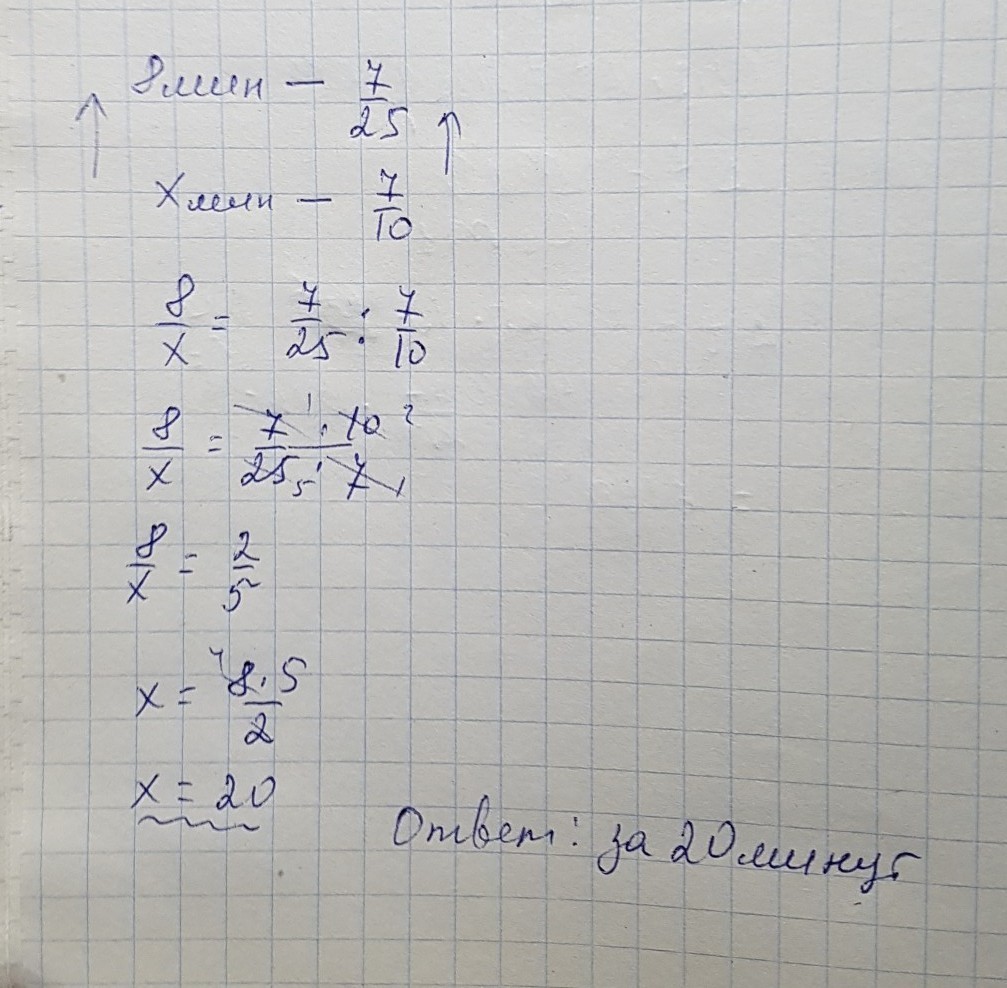 8мин — 7/25
Xмин — 7/10
8/x = 7/25 : 7/10
8/x = 7 1 · 10 2 / 25 5 · 7 1
8/x = 2/5
x = 4 8 · 5 / 2
x = 20
Ответ: за 20 минут